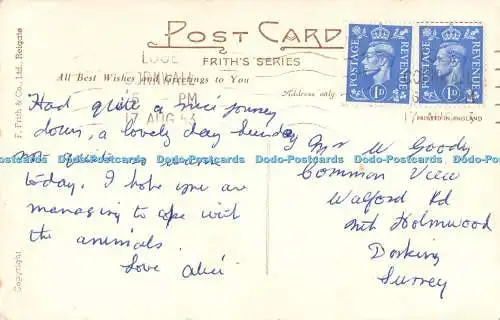 POST CARD
FRITH'S SERIES
All Best Wishes and Greetings to You
Address only
LOOE
CORNWALL
PM
17 AUG 53
POSTAGE
REVENUE
1D
POSTAGE
REVENUE
1D
PRINTED IN ENGLAND
F. Frith & Co., Ltd. Reigate
Copyright
Had quite a nice journey
down, a lovely day Sunday
not quite so
today. I hope you are
managing to cope with
the animals.
Love Alice
Mr W Goody
Common View
Walford Rd
Nth Holmwood
Dorking
Surrey
Dodo-Postcards Dodo-Postcards Dodo-Postcards Dodo-Postcards Dodo-Postcards